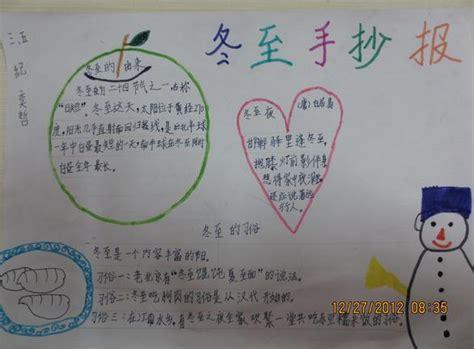 冬至手抄报
三五
纪奕哲
冬至的由来
冬至的二十四节气之一也称
"日短". 冬至这天,太阳位于黄经270
度,阳光几乎直射南回归线,是北半球
一年中白昼最短的一天,南半球在冬至时
白昼全年最长。
冬至夜
(唐)白居易
邯郸驿里逢冬至,
抱膝灯前影伴身
想得家中夜深坐
还应说着远
行人。
冬至的习俗
冬至是一个内容丰富的
习俗一:老北京有"冬至馄饨夏至面"的说法。
习俗二:冬至吃狗肉的习俗是从汉代开始的。
习俗三:在江南水乡,有冬至之夜全家欢聚一堂共吃赤豆糯米饭的习俗
12/27/2012 08:35